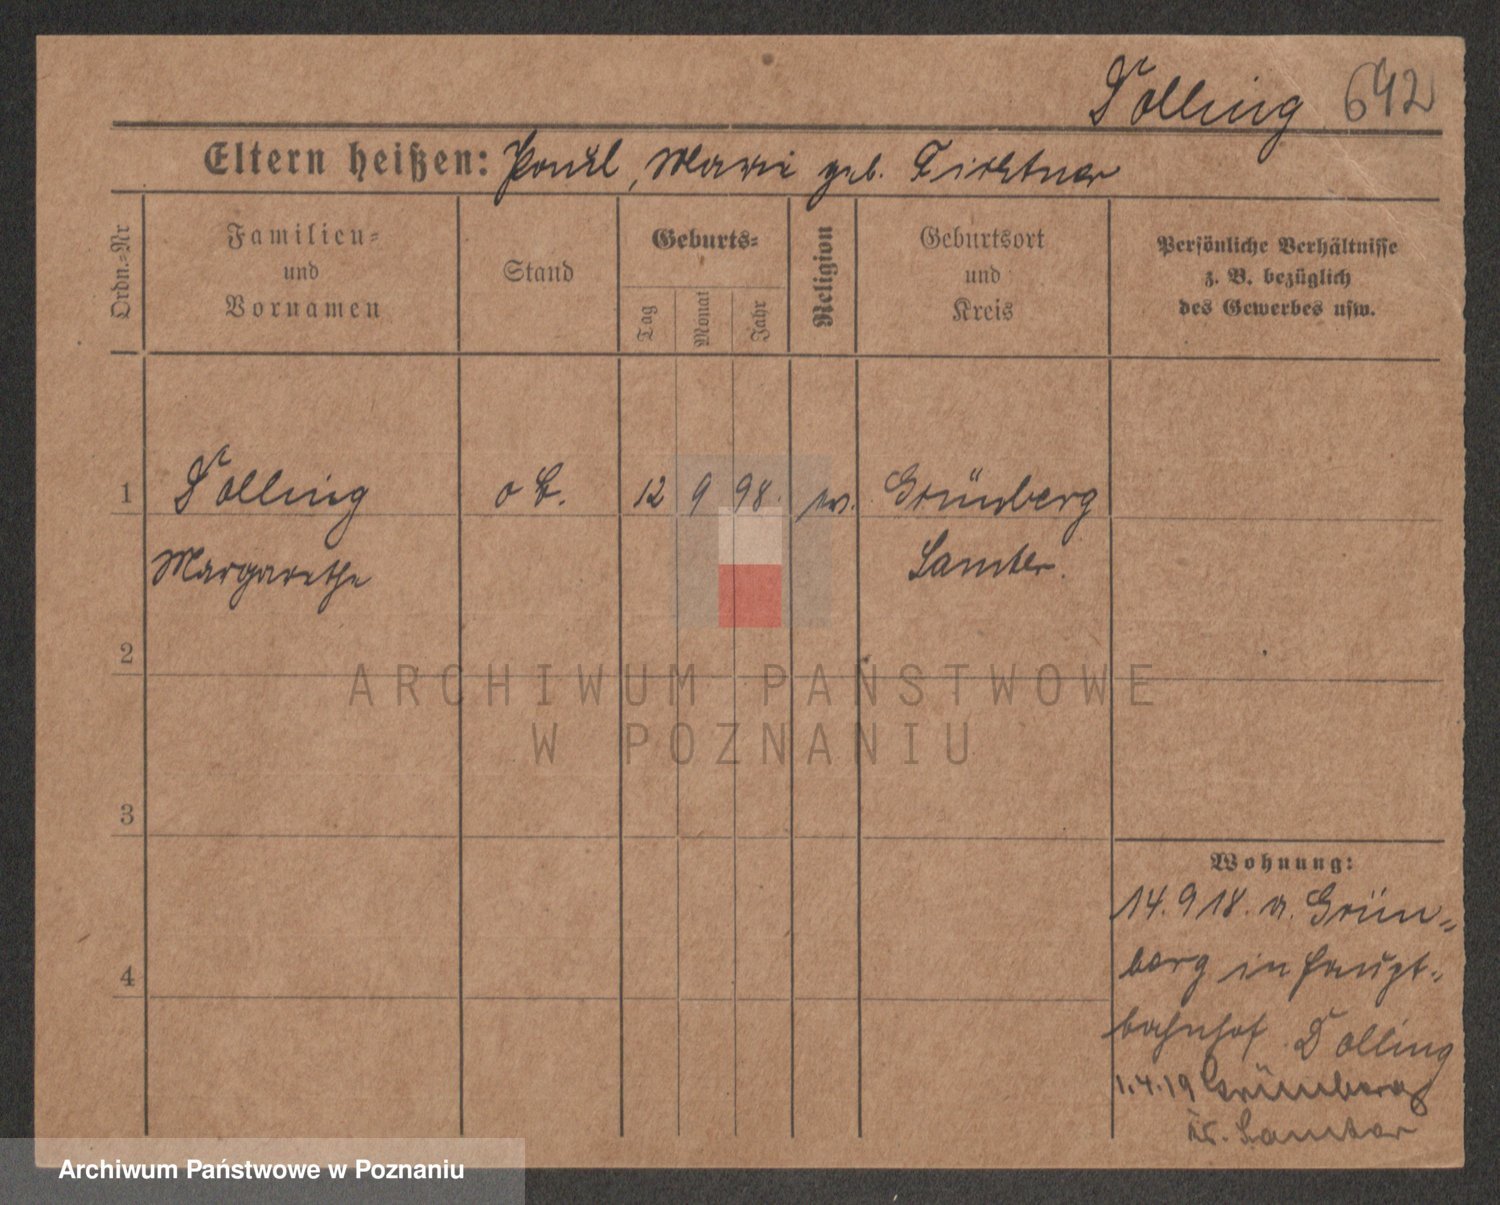 Dolling 642
Eltern heißen: Paul, Marie geb. Fichtner
Ordn.-Nr
Familien-
und
Vornamen
Stand
Geburts-
Tag
Monat
Jahr
Religion
Geburtsort
und
Kreis
Persönliche Verhältnisse
z. B. bezüglich
des Gewerbes usw.
1 Dolling o B. 12 9 98. ev. Grünberg
Margarethe Samter.
2
3
4
Wohnung:
14.9 18. v. Grün-
berg in Haupt-
bahnhof Dolling
1.4.19 Grünberg
Kr. Samter
ARCHIWUM PAŃSTWOWE
W POZNANIU
Archiwum Państwowe w Poznaniu